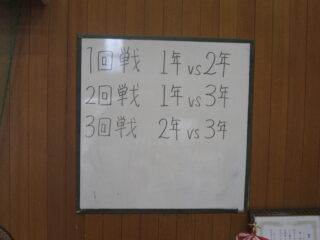 1回戦 1年 vs 2年
2回戦 1年 vs 3年
3回戦 2年 vs 3年